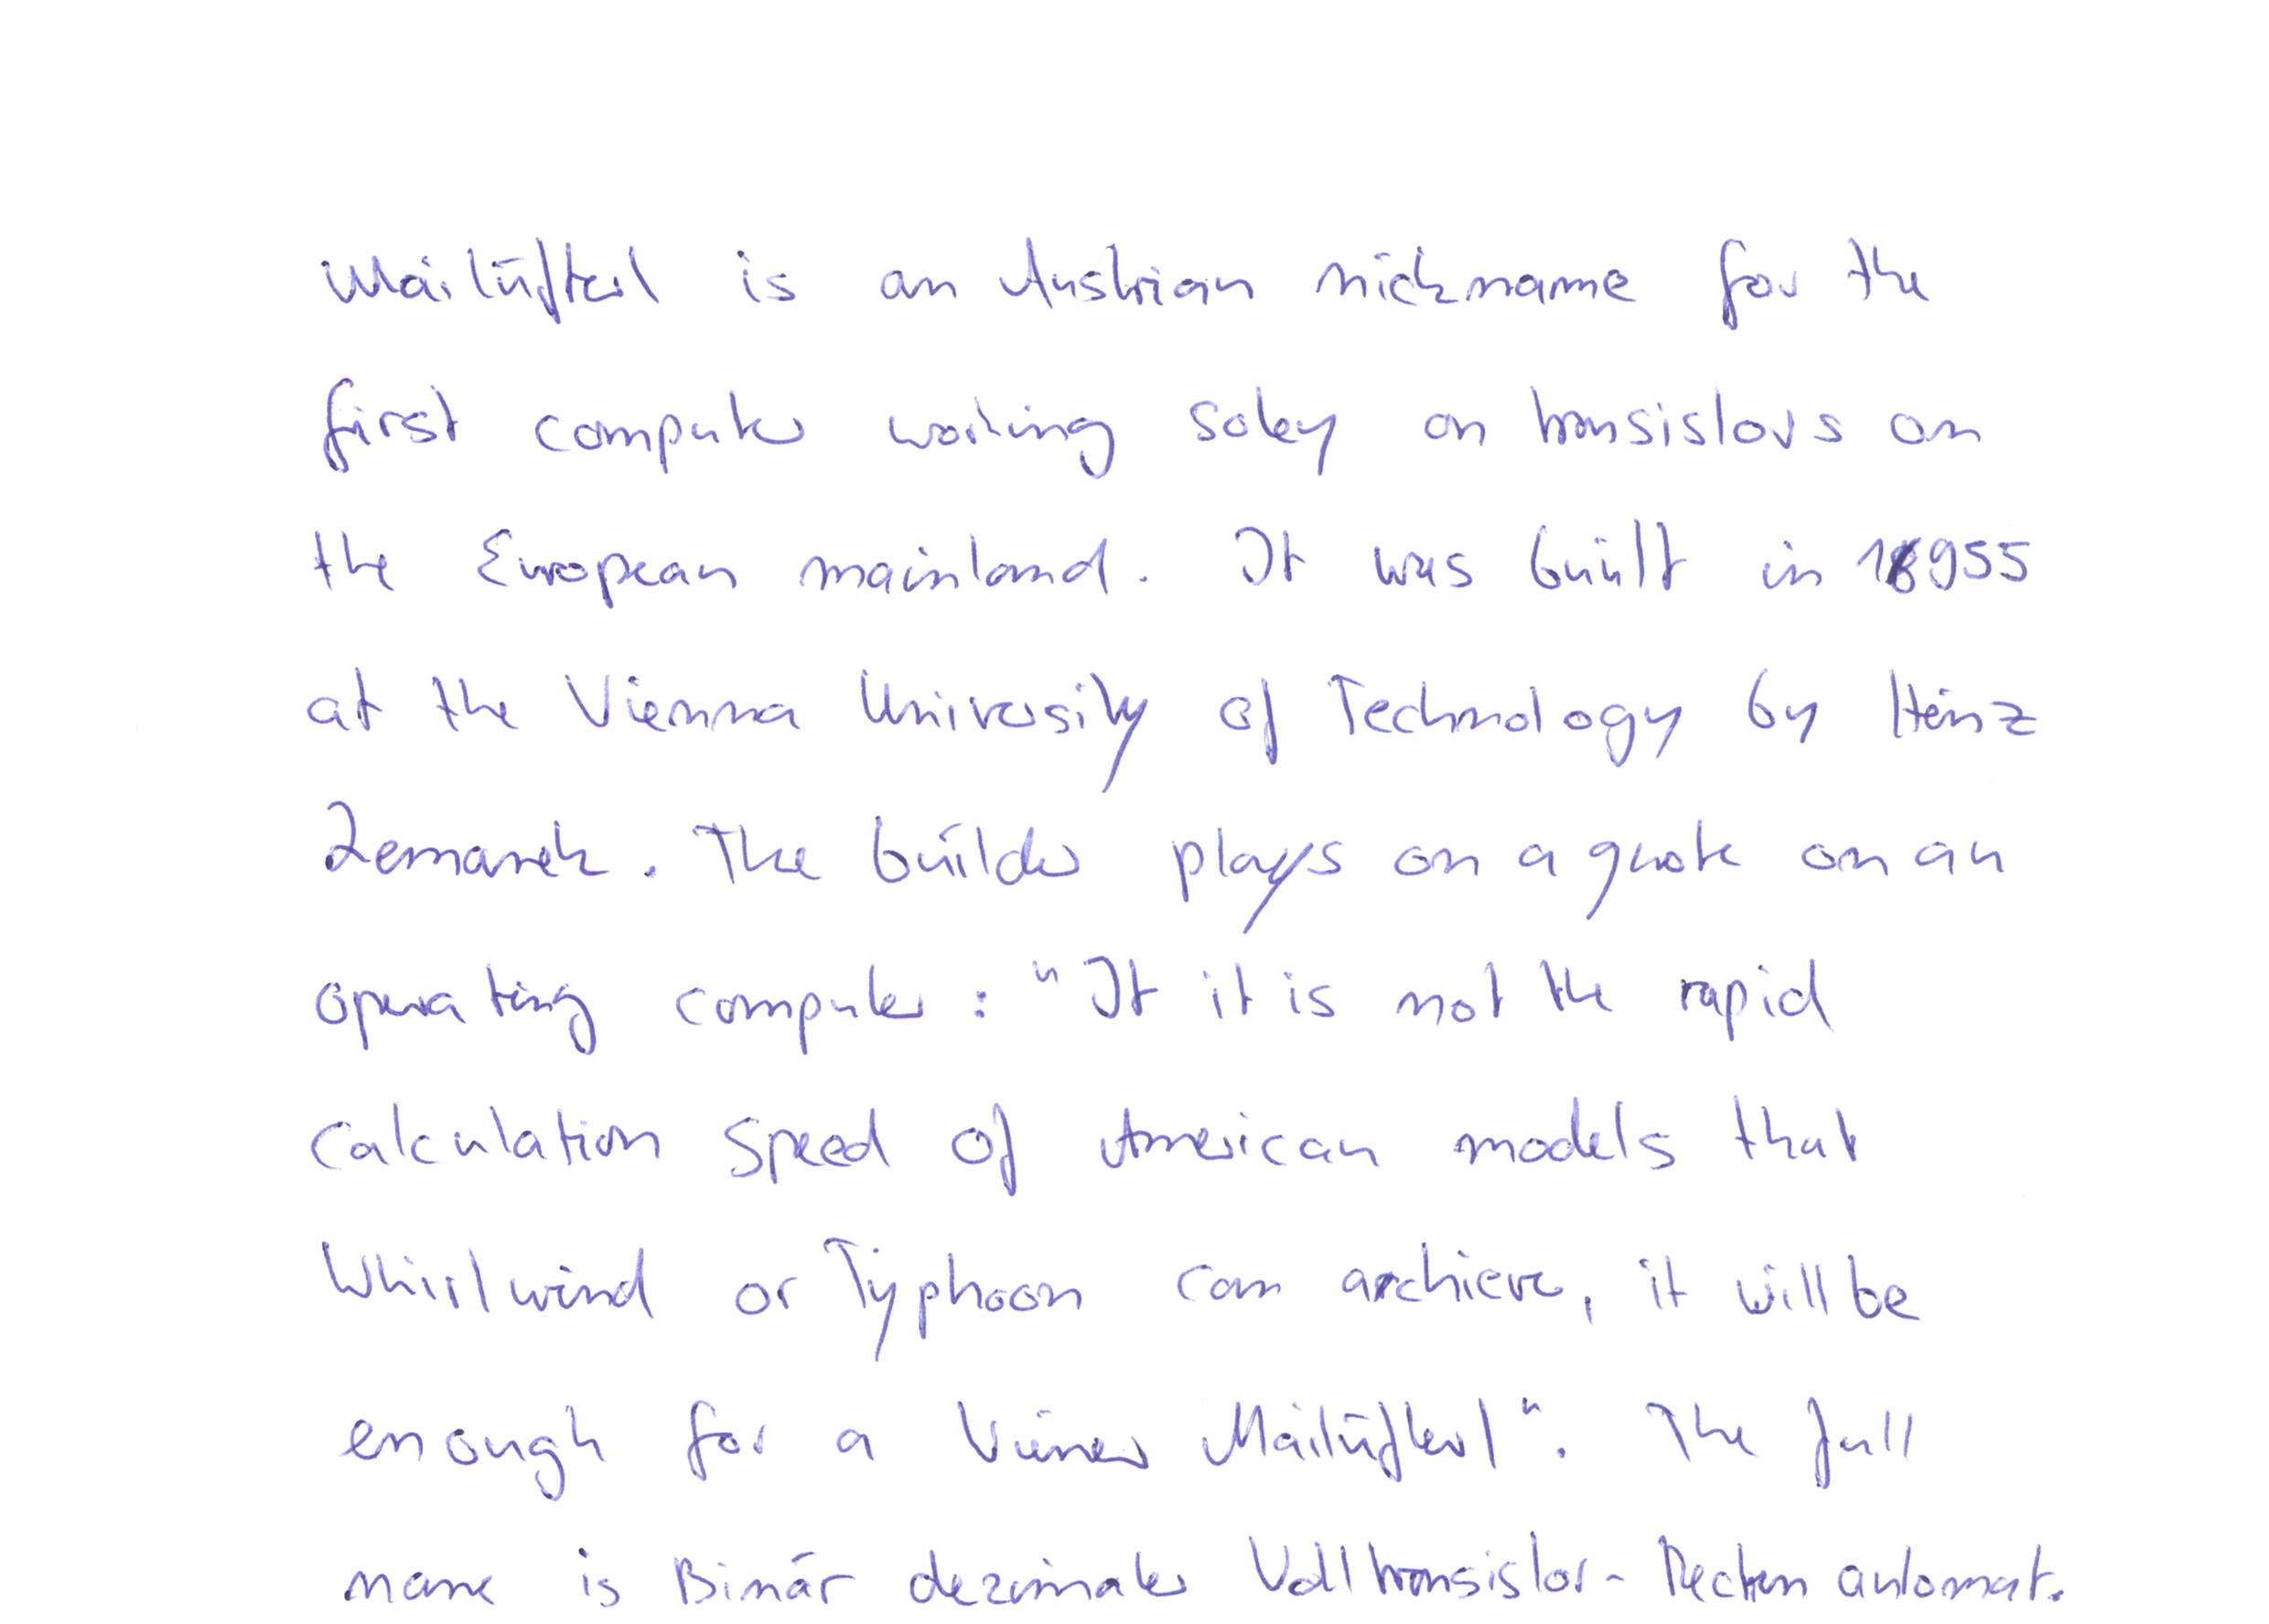 Mailüfterl is an Austrian nickname for the
first computer working soley on transistors on
the European mainland. It was built in 1955
at the Vienna University of Technology by Heinz
Zemanek. The builder plays on a quote on an
operating computer: "It it is not the rapid
calculation speed of American models that
Whirlwind or Typhoon can achieve, it will be
enough for a Wiener Mailüfterl". The full
name is Binär dezimaler Volltransistor-Rechen automat.